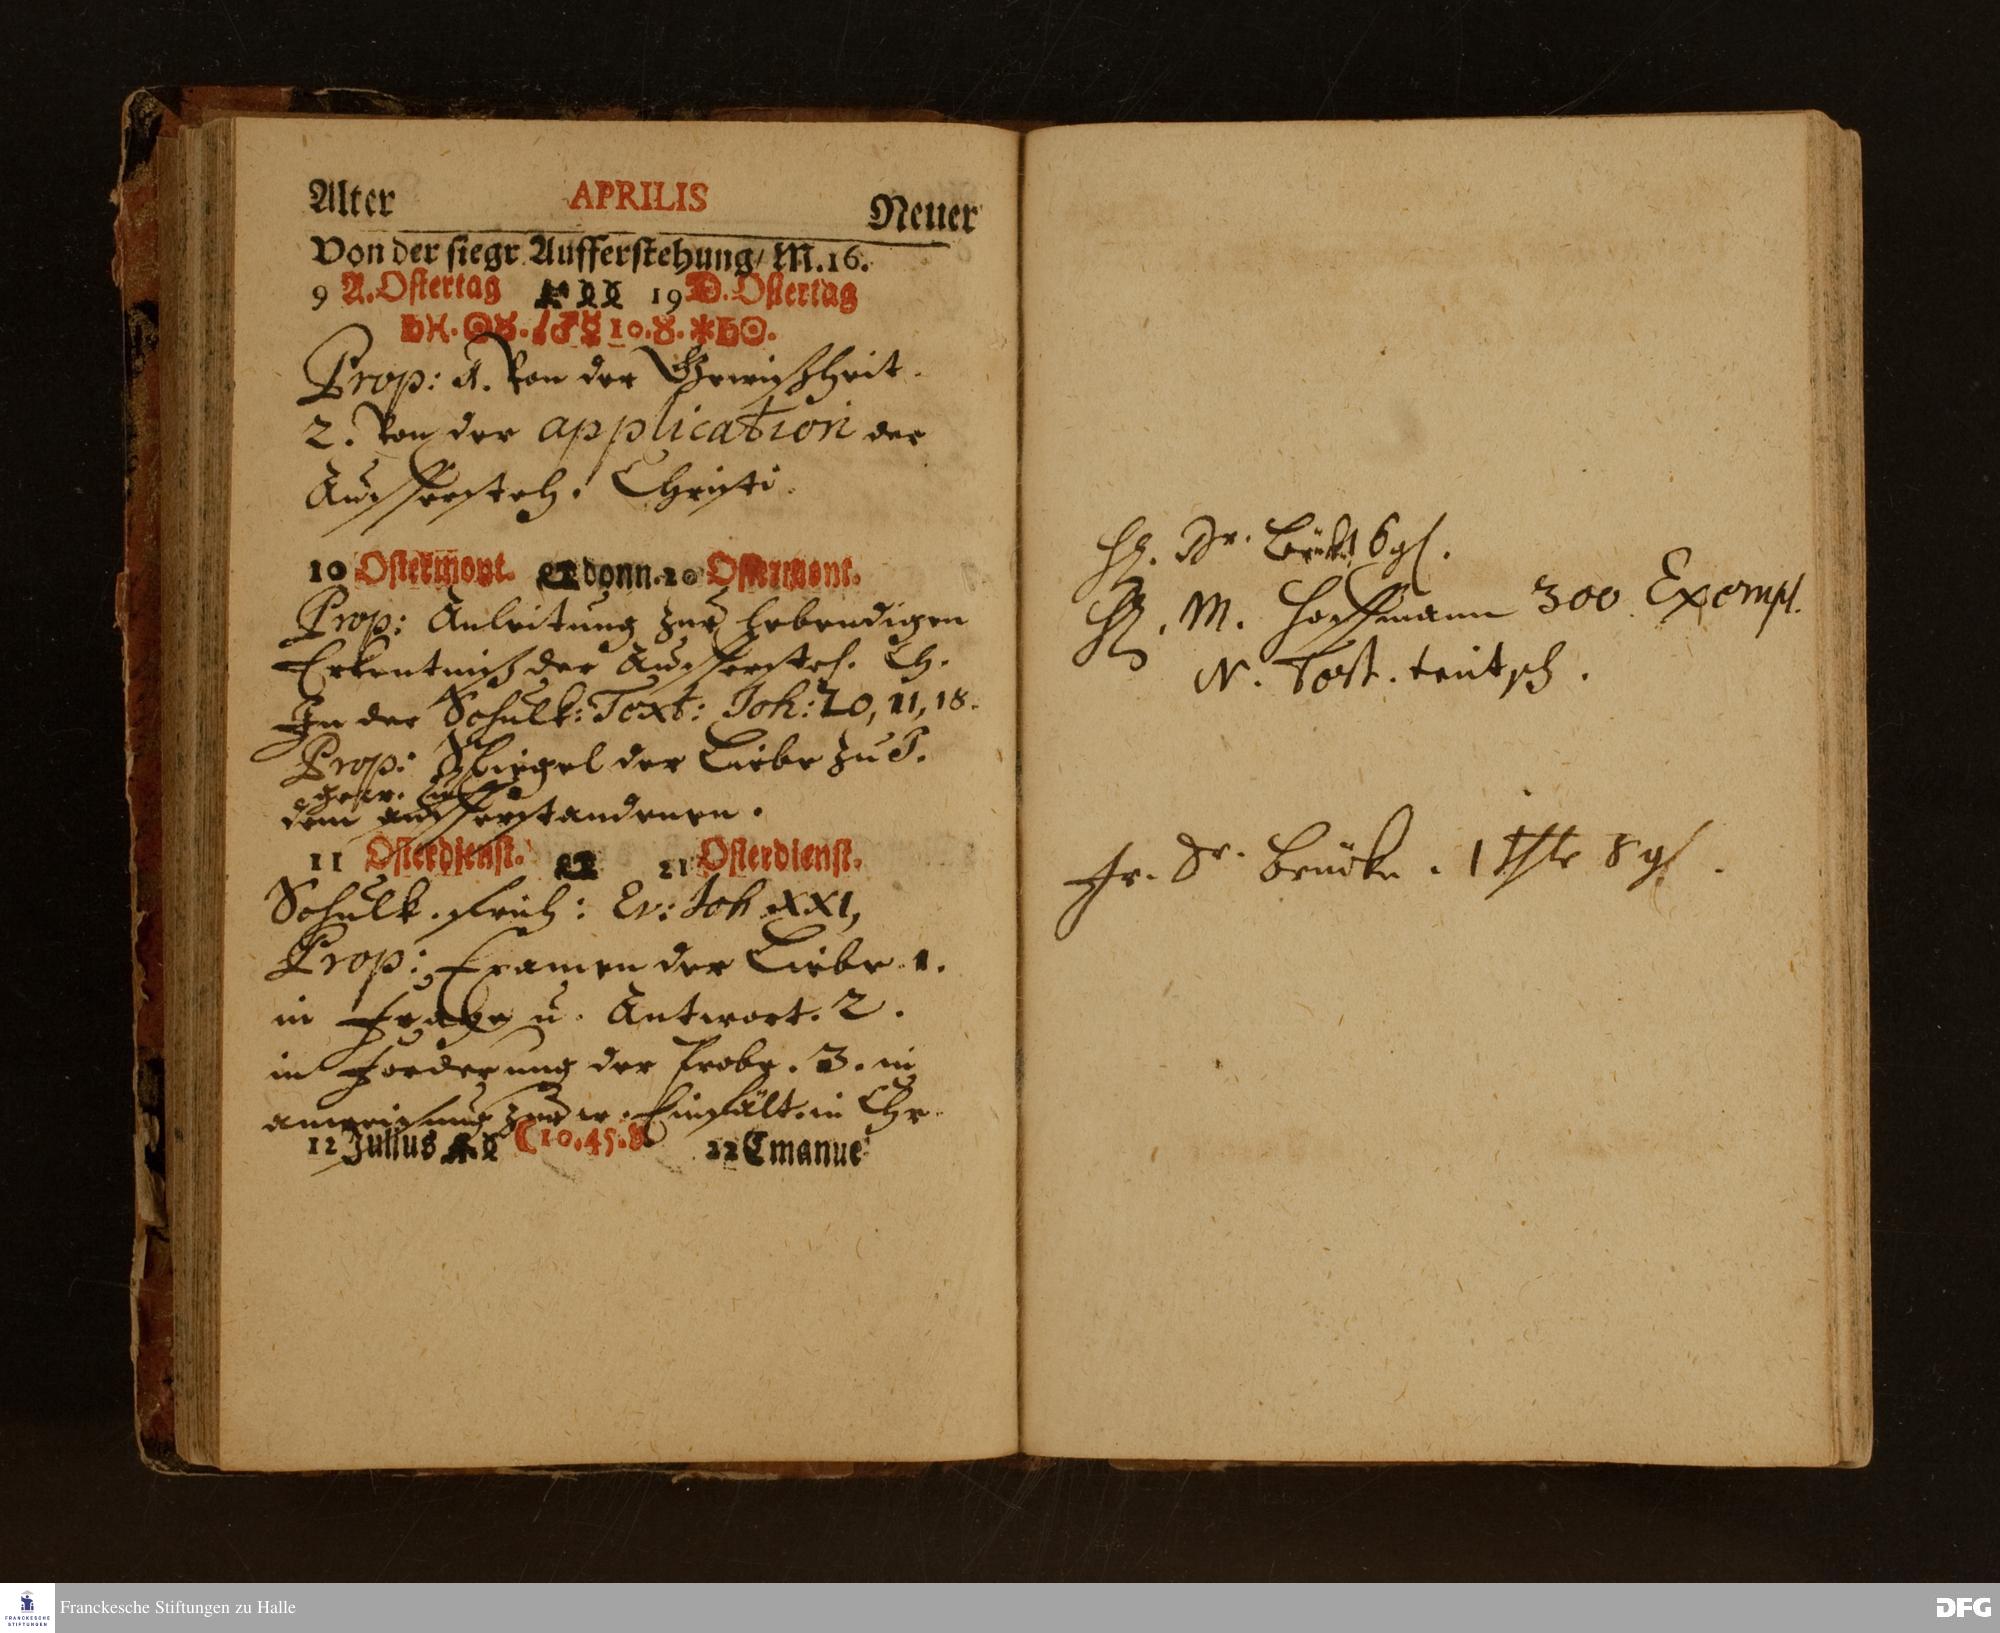 Alter APRILIS Neuer
Von der siegr. Aufferstehung/ M.16.
9 A. Ostertag 19 D. Ostertag
♄♓.☉♉. ♂☿ 10.♉.✱♄☉.
Prop: 1. Von der Gewißheit.
2. Von der application der
Auffersteh. Christi.
10 Ostermont. donn. 20 Ostermont.
Prop: Anleitung zur lebendigen
Erkentniß der Auffersteh. Ch.
In der Schulk: Text: Joh: 20, 11, 18.
Prop: Spiegel der Liebe zu J.
dem aufferstandenen.
11 Osterdienst. 21 Osterdienst.
Schulk. früh: Ev: Joh XXI,
Prop: Examen der Liebe 1.
in Frage u. Antwort. 2.
in Forderung der Probe. 3. in
anweisung zur Einfält. in Chr.
12 Julius 10.45. 22 Emanue
H. Dr. 6 gl.
H. M. Hoffmann 300 Exempl.
N. Test. teutsch.
Fr. Dr. Brückn. 1 8 gl.
Franckesche Stiftungen zu Halle
FRANCKESCHE
STIFTUNGEN
DFG